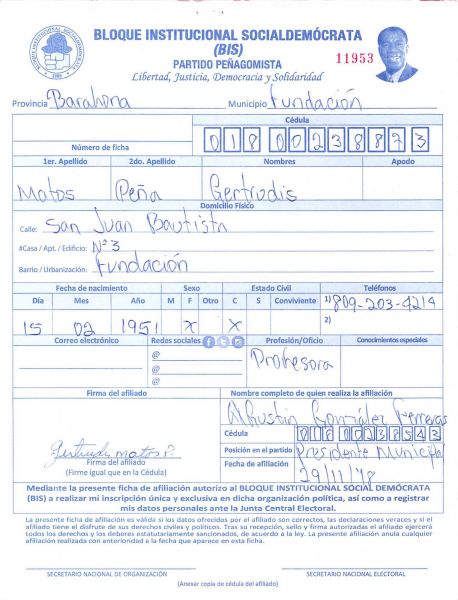 BLOQUE INSTITUCIONAL SOCIALDEMÓCRATA
(BIS)
11953
PARTIDO PEÑAGOMISTA
Libertad, Justicia, Democracia y Solidaridad
Provincia Barahona Municipio Fundación
Cédula
Número de ficha 018 0023887 3
1er. Apellido 2do. Apellido Nombres Apodo
Matos Peña Gertrudis
Domicilio Físico
Calle: San Juan Bautista
#Casa / Apt. / Edificio: Nº 3
Barrio / Urbanización: Fundación
Fecha de nacimiento Sexo Estado Civil Teléfonos
Día Mes Año M F Otro C S Conviviente 1) 809-203-4214
15 02 1951 X X 2)
Correo electrónico Redes sociales Profesión/Oficio Conocimientos especiales
@ Profesora
@
@
Firma del afiliado Nombre completo de quien realiza la afiliación
Agustin González Ferreras
Cédula
Posición en el partido Presidente Municipal
Gertrudis matos P.
Firma del afiliado
(Firme igual que en la Cédula)
Fecha de afiliación 29/11/18
Mediante la presente ficha de afiliación autorizo al BLOQUE INSTITUCIONAL SOCIAL DEMÓCRATA
(BIS) a realizar mi inscripción única y exclusiva en dicha organización política, así como a registrar
mis datos personales ante la Junta Central Electoral.
La presente ficha de afiliación es válida si los datos ofrecidos por el afiliado son correctos, las declaraciones veraces y si el
afiliado tiene el disfrute de sus derechos civiles y políticos. Tras su recepción, sello y firma autorizados el afiliado ejercerá
todos los derechos y los deberes estatutariamente sancionados, de acuerdo a la ley. La presente afiliación anula cualquier
afiliación realizada con anterioridad a la fecha que aparece en esta ficha.
SECRETARIO NACIONAL DE ORGANIZACIÓN SECRETARIO NACIONAL ELECTORAL
(Anexar copia de cédula del afiliado)